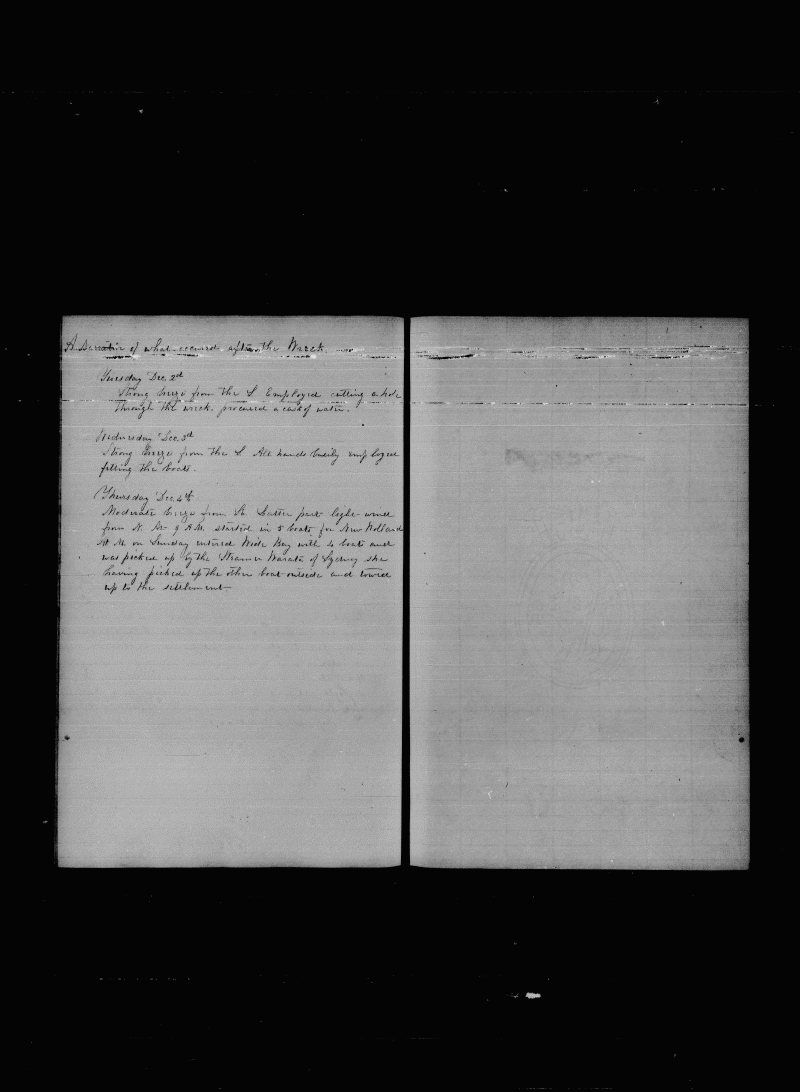 A Narratie of what occured after the Wreck
Tuesday Dec. 2nd
Strong breeze from the S Employed cutting a hole
through the wreck. procured a cask of water.
Wednesday Dec. 3rd
Strong breeze from the S All hands busily employed
fitting the boats.
Thursday Dec. 4th
Moderate breeze from Latter part light wind
from N. At 9 A.M. started in 5 boats for New Holland
At M. on Sunday entered Wide Bay with 4 boats and
was picked up by the Steamer Warata of Sydney she
having picked up the other boat outside and towed
up to the settlement